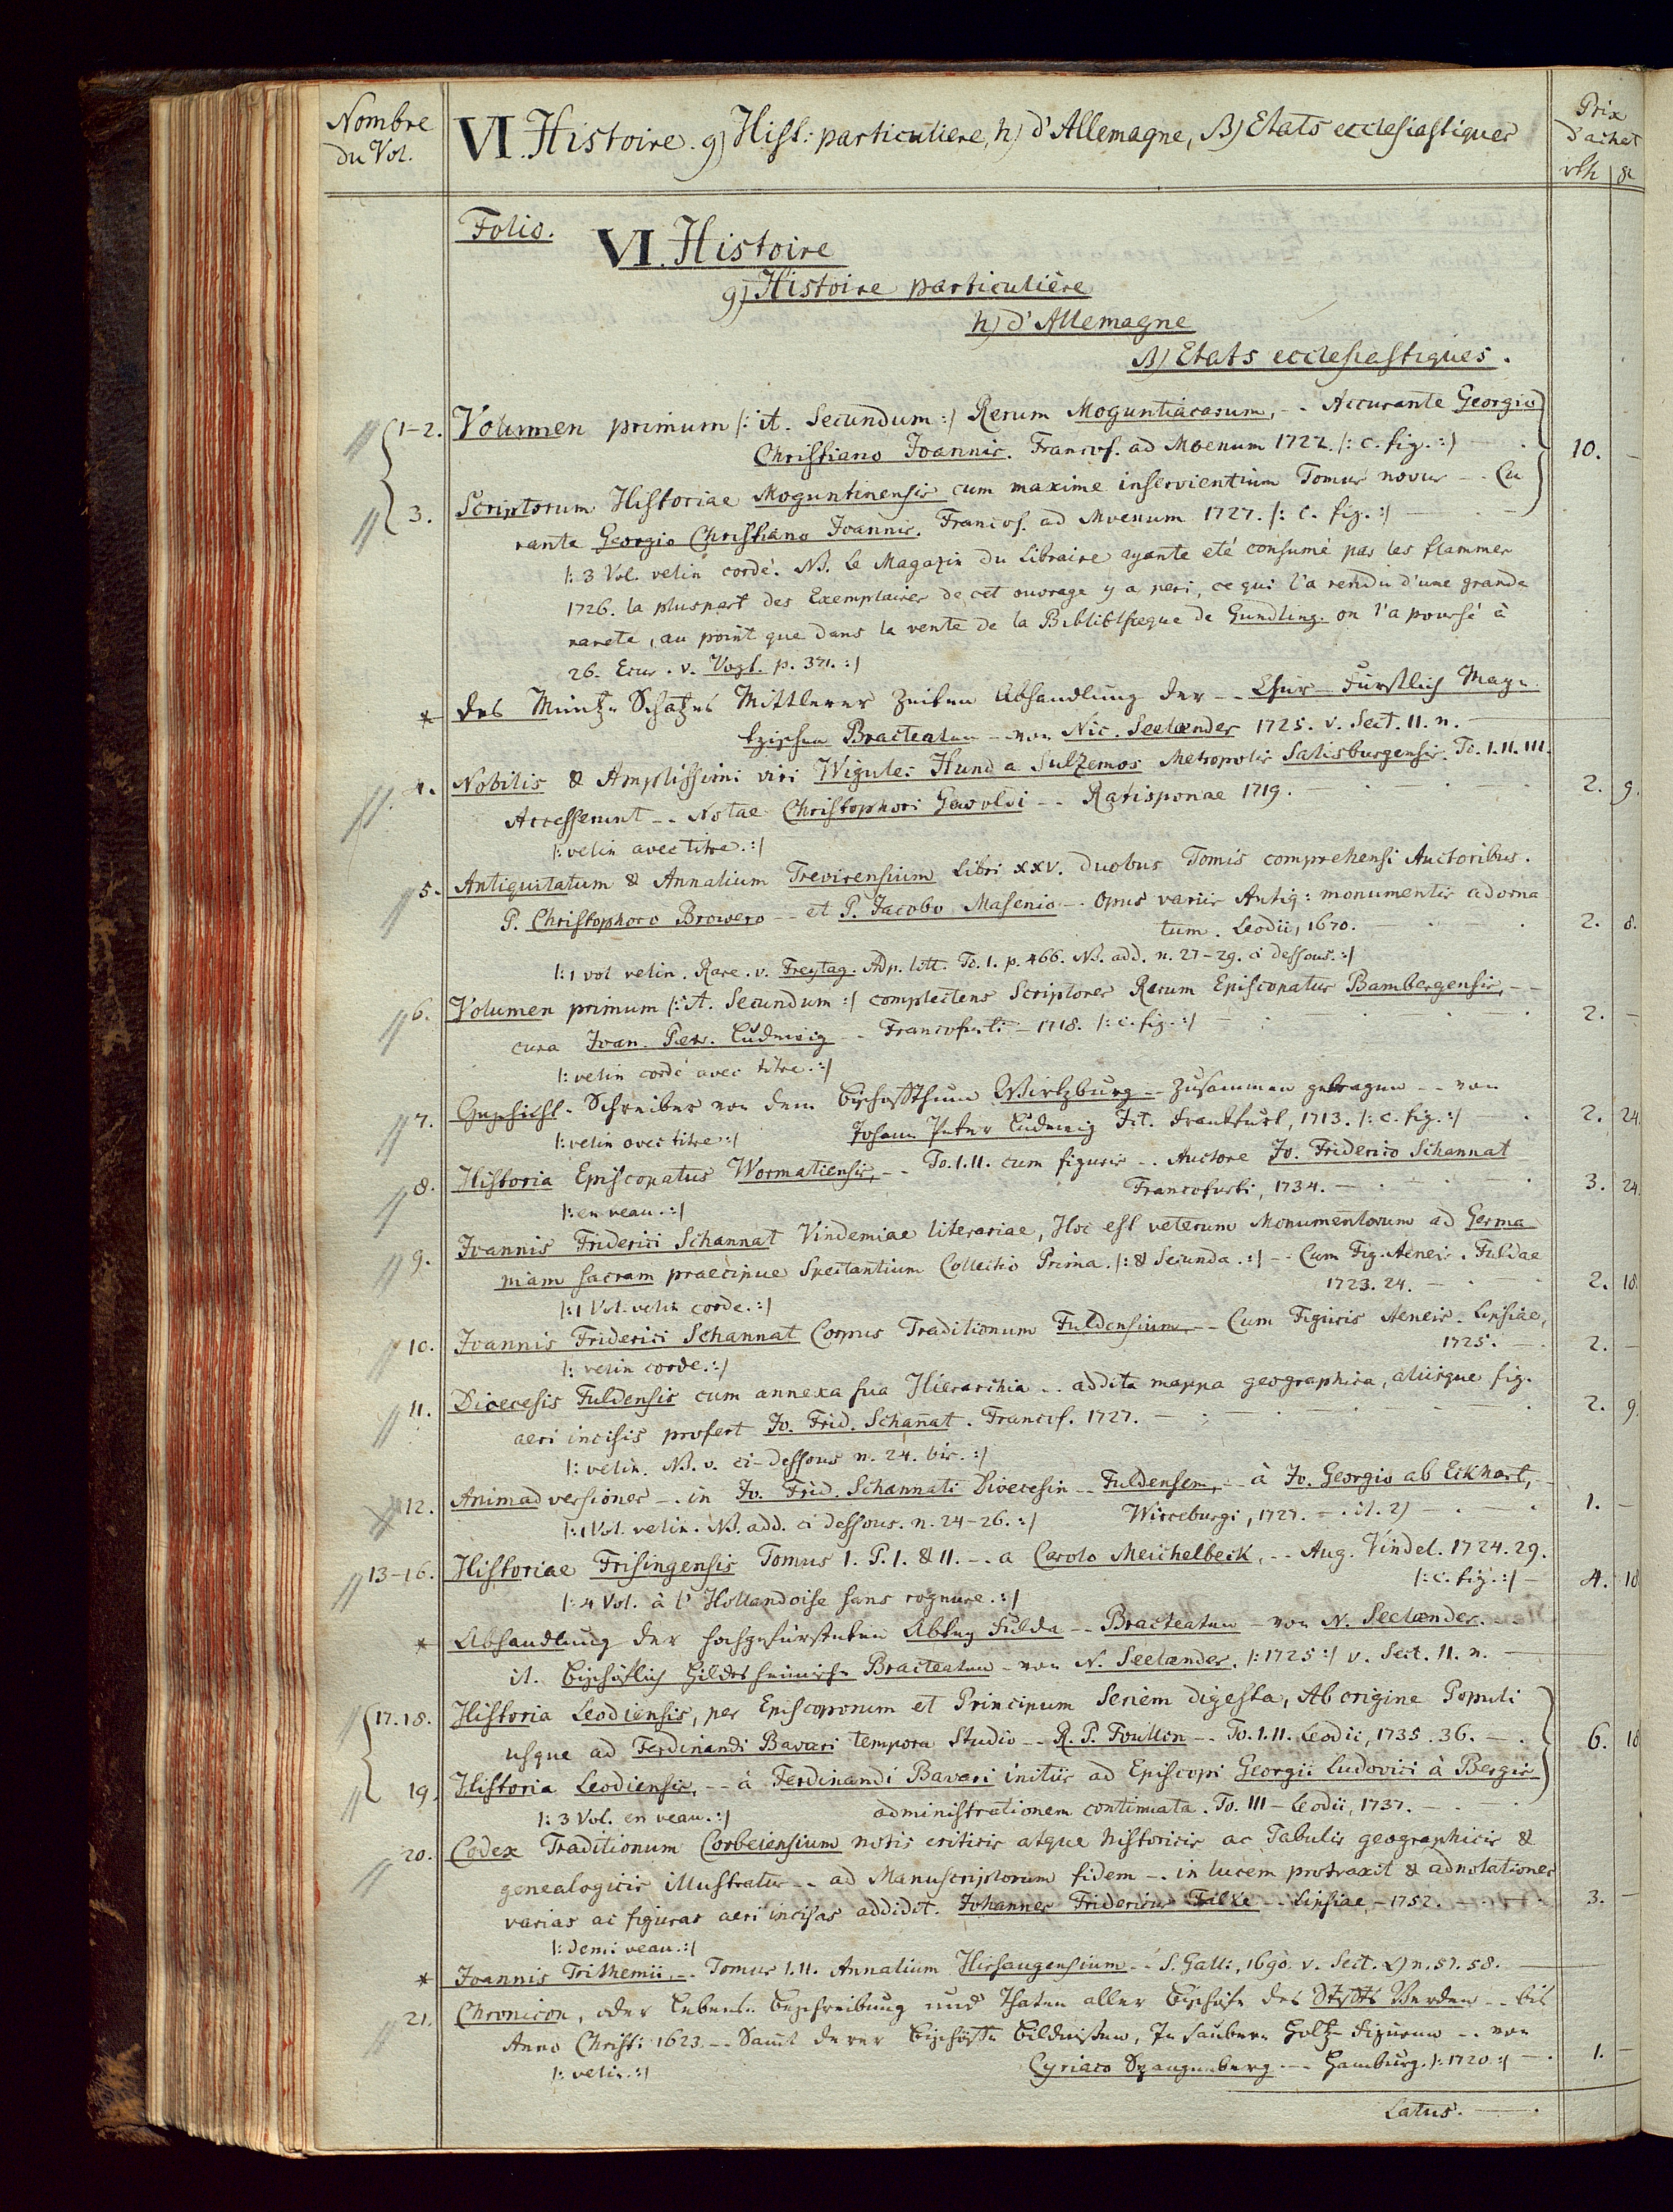 Nombre du Vol.
VI. Histoire. g) Hist: particuliere, h) d'Allemagne, β) Etats ecclesiastiques
Prix d'achat
rth | gr
Folio.
VI. Histoire
g) Histoire particulière
h) d'Allemagne
β) Etats ecclesiastiques.
1-2. Volumen primum |: it. Secundum :| Rerum Moguntiacarum, -- Accurante Georgio
Christiano Joannis. Francof. ad Moenum 1722. |: c. fig. :| 10. -
3. Scriptorum Historiae Moguntinensis cum maxime inservientium Tomus novus -- Cu
rante Georgio Christiano Joannis. Francof. ad Moenum 1727. |: c. fig. :|
|: 3 Vol. velin cordé. NB. le Magazin du Libraire ayante eté consumé pas les flammes
1726. la pluspart des Exemplaires de cet ouvrage y a peri, ce qui l'a rendu d'une grande
rareté, au point que dans la vente de la Bibliotheque de Gundling. on l'a poussé à
26. Ecus. v. Vogt. p. 371. :|
* Des Müntz-Schatzes Mittlerer Zeiten Abhandlung der -- Chur-Fürstlich Mayn-
tzischen Bracteaten -- von Nic. Seelænder 1725. v. Sect. 11. n. —
4. Nobilis & Amplissimi viri Wigulei Hund a Sulzemos Metropolis Salisburgensis. To. I. II. III.
Accesserunt -- Notae Christophori Gewoldi -- Ratisponae 1719. 2. 9.
|: velin avec titre. :|
5. Antiquitatum & Annalium Trevirensium Libri XXV. duobus Tomis comprehensi Auctoribus.
P. Christophoro Browero -- et P. Jacobo Masenio -- Opus variis Antiq: monumentis adorna
tum. Leodii, 1670. 2. 8.
|: 1 vol velin. Rare. v. Freytag. Adp. litt. To. 1. p. 466. NB. add. n. 27-29. ci dessous. :|
6. Volumen primum |: it. Secundum :| complectens Scriptores Rerum Episcopatus Bambergensis, --
cura Joan. Petr. Ludwig -- Francofurti - 1718. |: c. fig. :| 2. -
|: velin cordé avec titre. :|
7. Geschicht-Schreiber von dem Bischoffthum Wirtzburg -- zusammen getragen -- von
|: velin avec titre :| Johann Peter Ludewig Fol. Franckfurt, 1713. |: c. fig. :| 2. 24.
8. Historia Episcopatus Wormatiensis, -- To. I. II. cum figuris -- Auctore Jo. Friderico Schannat
Francofurti, 1734. 3. 24.
|: en veau. :|
9. Joannis Friderici Schannat Vindemiae literariae, Hoc est veterum Monumentorum ad Germa
niam sacram praecipue spectantium Collectio Prima. |: & Secunda. :| -- Cum Fig. Aeneis. Fuldae
1723. 24. 2. 18.
|: 1 Vol. velin corde. :|
10. Joannis Friderici Schannat Corpus Traditionum Fuldensium -- Cum Figuris Aeneis. Lipsiae,
1725. 2. -
|: velin corde. :|
11. Dioecesis Fuldensis cum annexa sua Hierarchia -- addita mappa geographica, aliisque fig.
aeri incisis profert Jo. Frid. Schannat. Francof. 1727. 2. 9.
|: velin. NB. v. ci-dessous n. 24. bis. :|
12. Animadversiones -- in Jo. Frid. Schannati Dioecesin -- Fuldensem, -- à Jo. Georgio ab Eckhart, --
|: 1 Vol. velin. NB. add. ci dessous. n. 24-26. :| Wirceburgi, 1727. 1. -
13-16. Historiae Frisingensis Tomus I. P. I. & II. -- a Carolo Meichelbeck, -- Aug. Vindel. 1724. 29.
|: c. fig. :| 4. 18
|: 4 Vol. à l'Hollandoise sans rognure. :|
* Abhandlung der hochgefürsteten Abbey Fulda -- Bracteaten -- von N. Seelænder.
it. Bischöflich Hildesheimische Bracteaten - von N. Seelænder. |: 1725 :| v. Sect. 11. n. —
17. 18. Historia Leodiensis, per Episcoporum et Principum Seriem digesta, Ab origine Populi
usque ad Ferdinandi Bavari tempora Studio -- R. P. Foullon -- To. I. II. Leodii, 1735. 36. 6. 18
19. Historia Leodiensis, -- à Ferdinandi Bavari initiis ad Episcopi Georgii Ludovici à Bergis
administrationem continuata. To. III - Leodii, 1737.
|: 3 Vol. en veau. :|
20. Codex Traditionum Corbeiensium notis criticis atque historicis ac Tabulis geographicis &
genealogicis illustratus -- ad Manuscriptorum fidem -- in lucem protraxit & adnotationes
varias ac figuras aeri incisas addidit. Johannes Fridericus Falke -- Lipsiae - 1752. 3. -
|: demi veau. :|
* Joannis Trithemii, -- Tomus I. II. Annalium Hirsaugensium -- S. Galli, 1690. v. Sect. α) n. 57. 58.
21. Chronicon, oder Lebens-Beschreibung und Thaten aller Bischöfe des Styfts Verden -- bis
Anno Christi 1623. -- Samt derer Bischöffe Bildnissen, In saubern Holtz-Figuren -- von
Cyriaco Spangenberg --- Hamburg. |: 1720 :| 1. -
|: velin. :|
Latus.